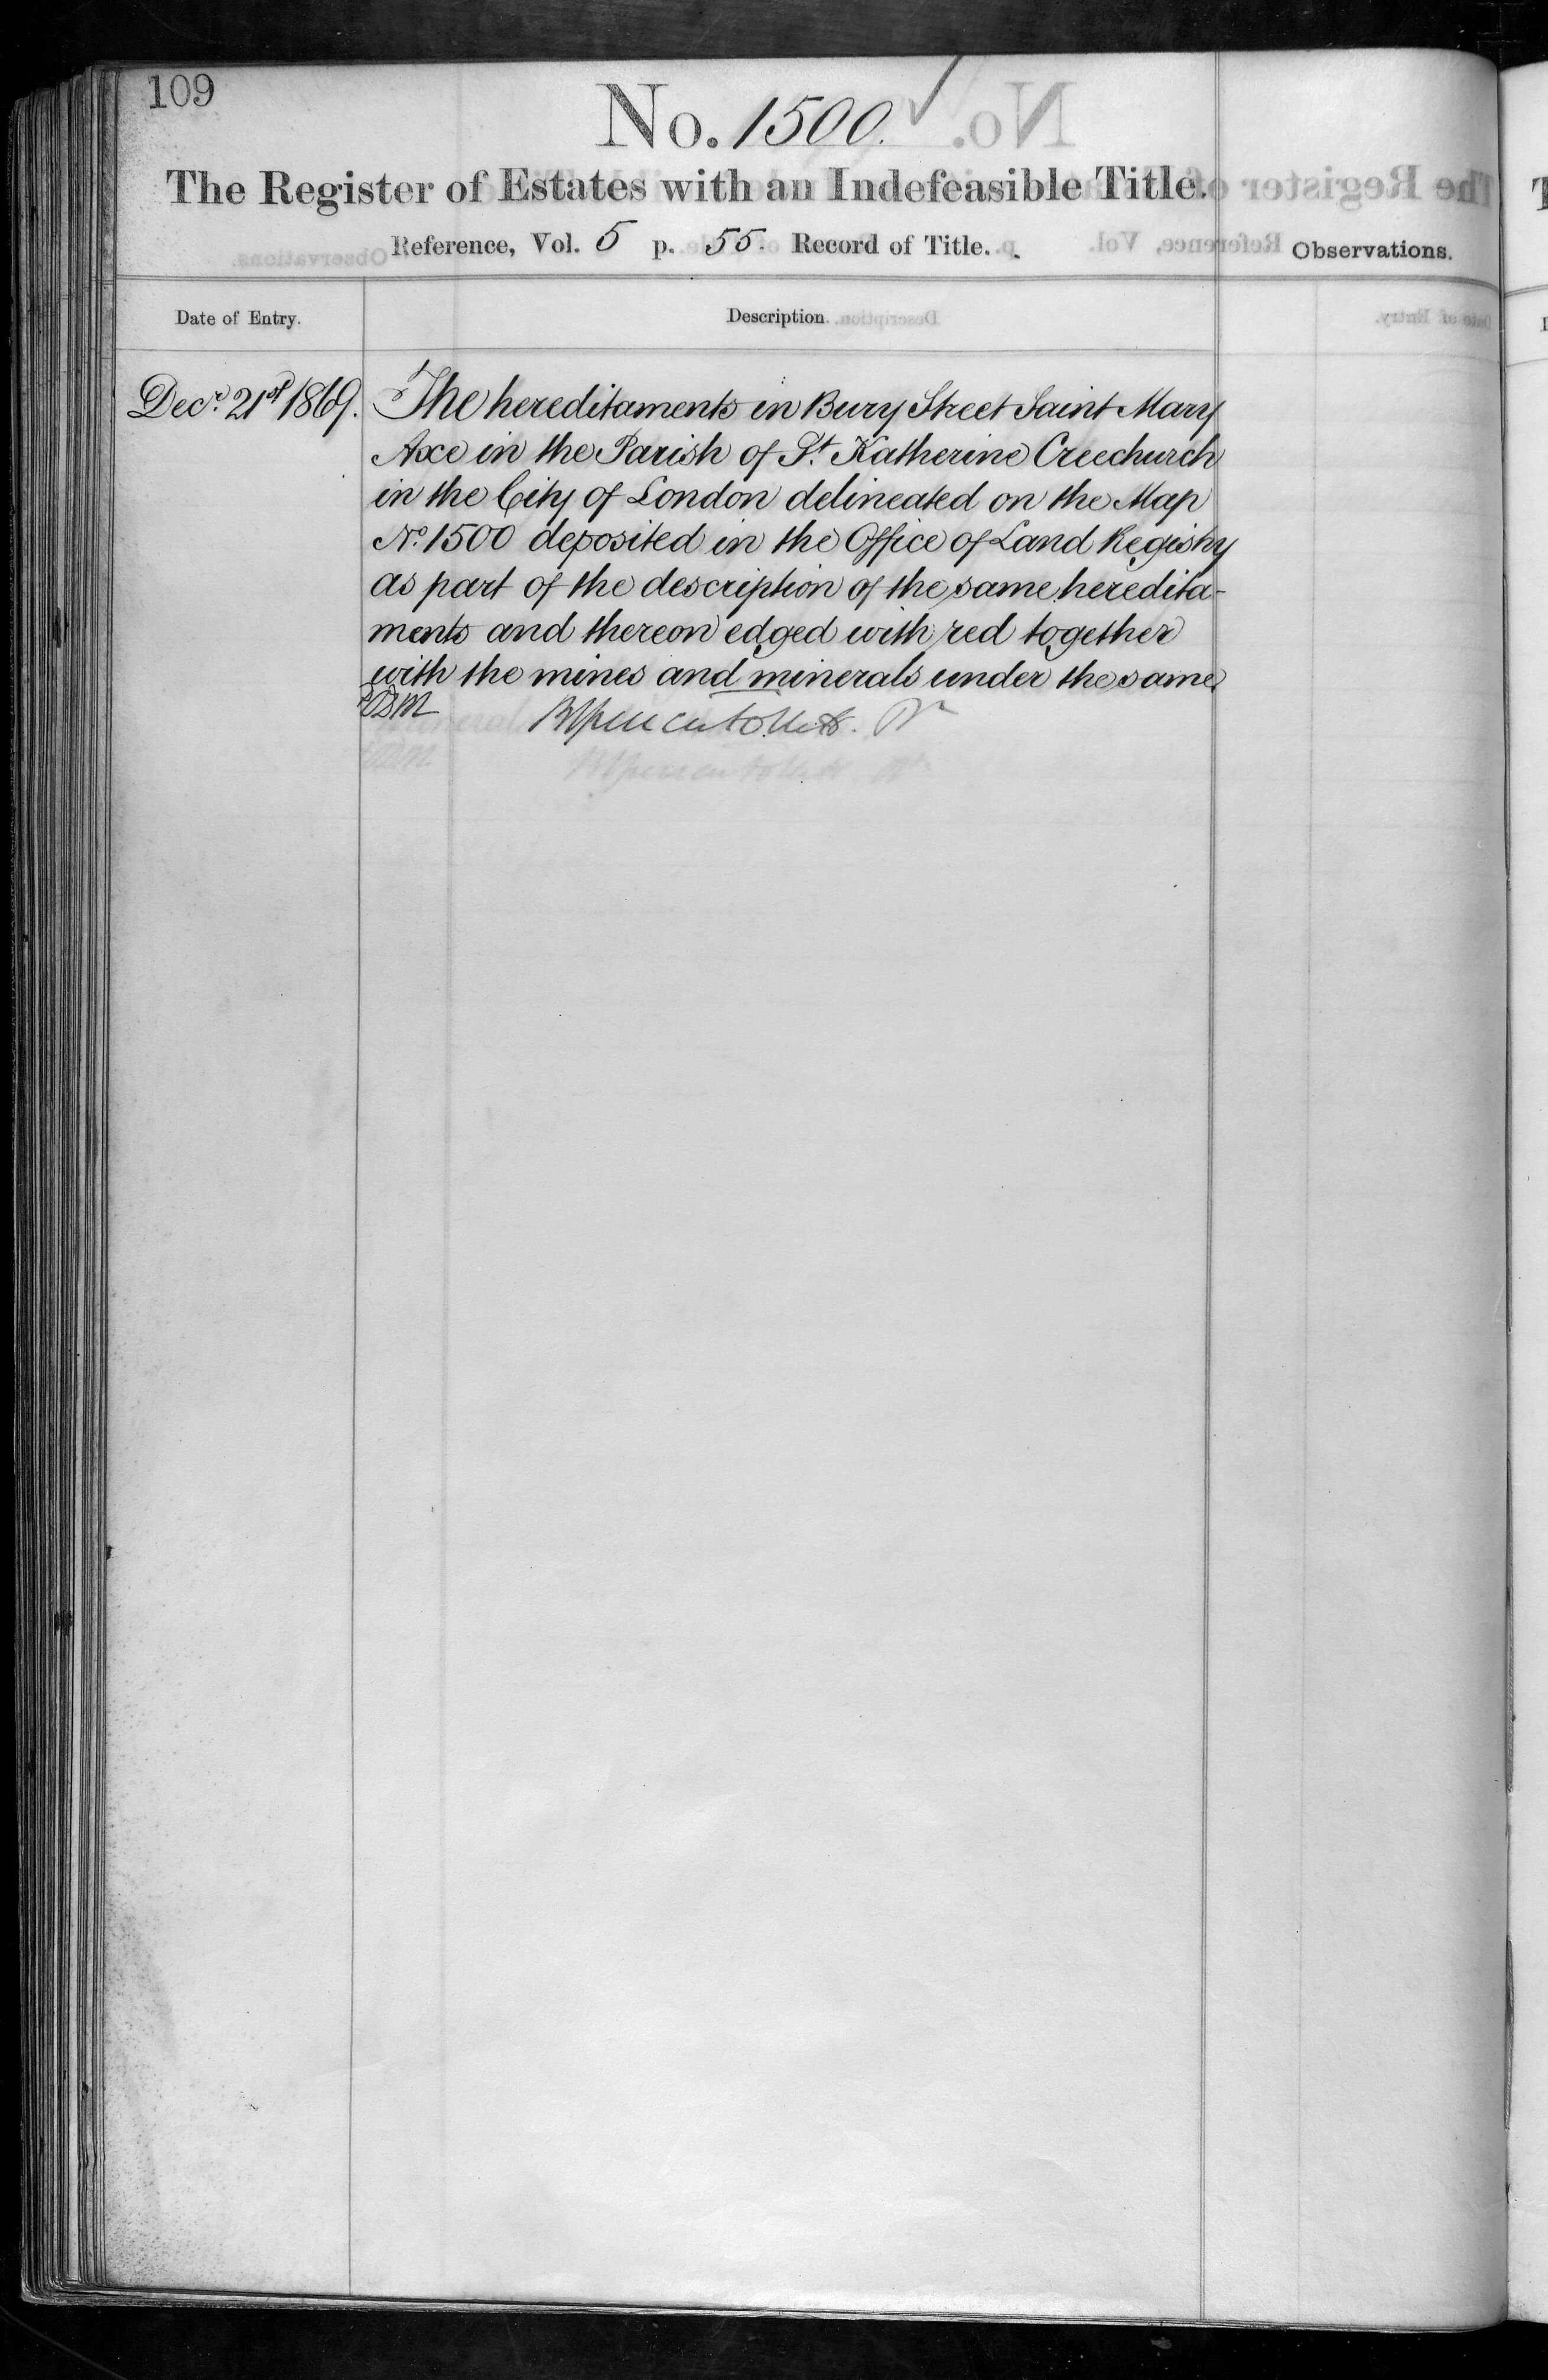 109
No. 1500.
The Register of Estates with an Indefeasible Title.
Reference, Vol. 5 p. 55. Record of Title.
Observations.
Date of Entry.
Description.
Decr. 21st 1869.
The hereditaments in Bury Street Saint Mary
Axe in the Parish of St. Katherine Creechurch
in the City of London delineated on the Map
No. 1500 deposited in the Office of Land Registry
as part of the description of the same heredita-
ments and thereon edged with red together
with the mines and minerals under the same.